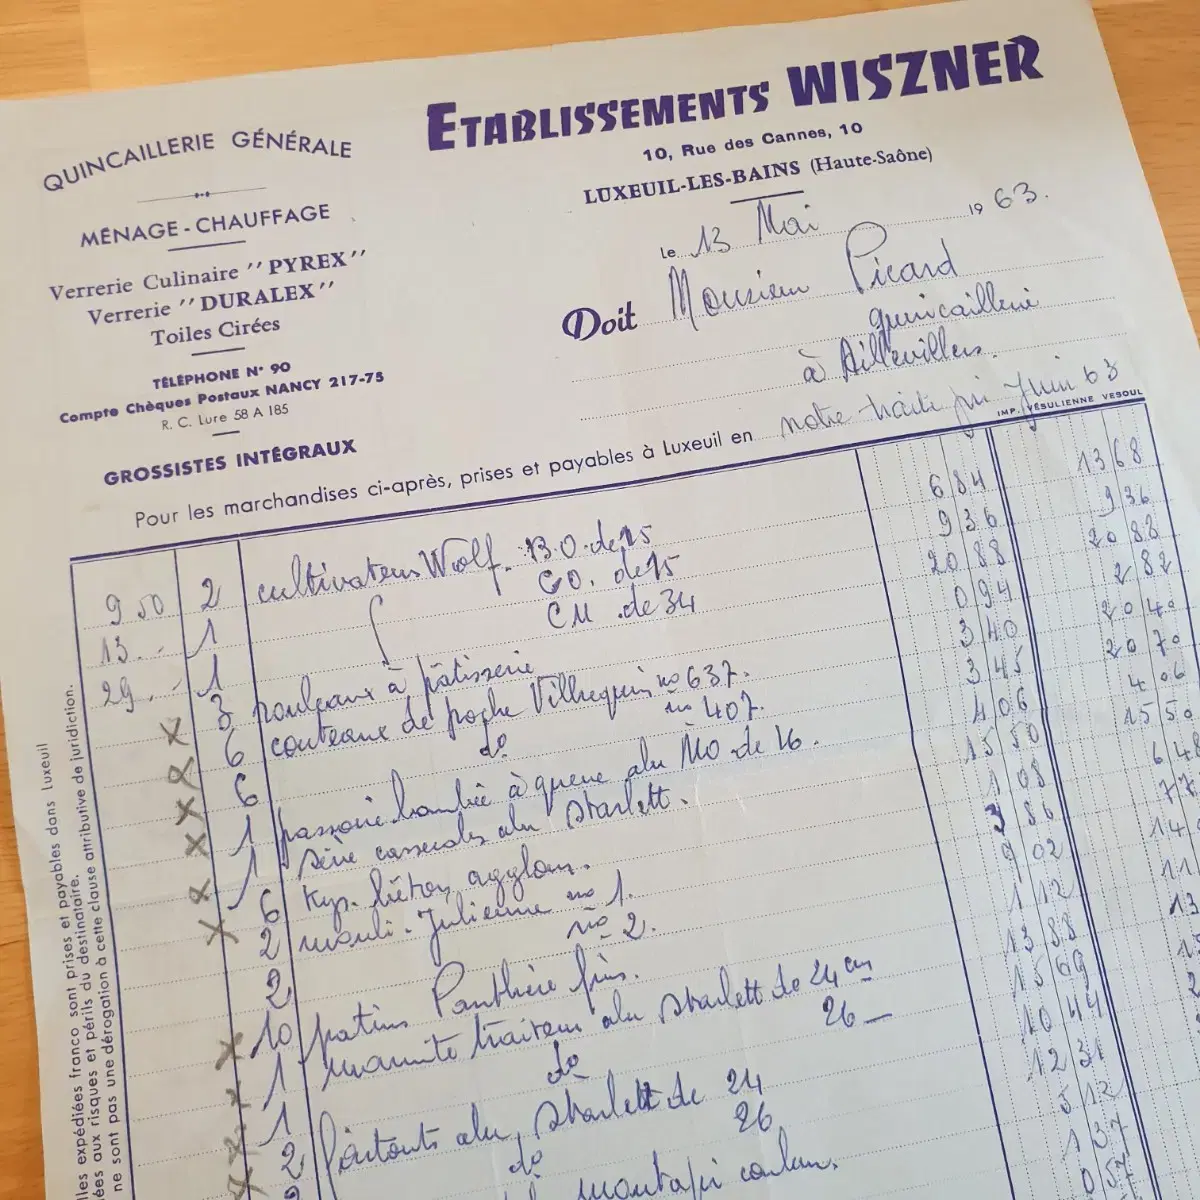 QUINCAILLERIE GÉNÉRALE
MÉNAGE - CHAUFFAGE
Verrerie Culinaire "PYREX"
Verrerie "DURALEX"
Toiles Cirées
TÉLÉPHONE N° 90
Compte Chèques Postaux NANCY 217-75
R. C. Lure 58 A 185
GROSSISTES INTÉGRAUX
ETABLISSEMENTS WISZNER
10, Rue des Cannes, 10
LUXEUIL-LES-BAINS (Haute-Saône)
le 13 Mai 1963.
Doit Monsieur Picard
quincaillerie
à Aillevillers.
Pour les marchandises ci-après, prises et payables à Luxeuil en notre traite fin Juin 63
IMP. VÉSULIENNE VESOUL
9 50 2 cultivateurs Wolf. BO. de 15 6 84 13 68
13 - 1 CO. de 15 9 36 9 36
29 - 1 CM. de 34 20 88 20 88
3 rouleaux à pâtisserie 0 94 2 82
6 couteaux de poche Villequin no 637. 3 40 20 40
6 do no 407. 3 45 20 70
1 passoire bombée à queue alu MO de 16. 4 06 4 06
1 série casseroles alu Starlett. 15 50 15 50
6 Kgs. béton agglom. 1 08 6 48
2 mouli-Julienne no 1. 3 86
2 no 2. 9 02
10 patins Panthère fins. 1 12
1 marmite traiteur alu Starlett de 24 cm 13 88
1 do 26 - 15 69
2 faitouts alu Starlett de 24 10 44
do 26 12 31
5 12
1 37
0 57
lles expédiées franco sont prises et payables dans Luxeuil
ées aux risques et périls du destinataire.
ne sont pas une dérogation à cette clause attributive de juridiction.